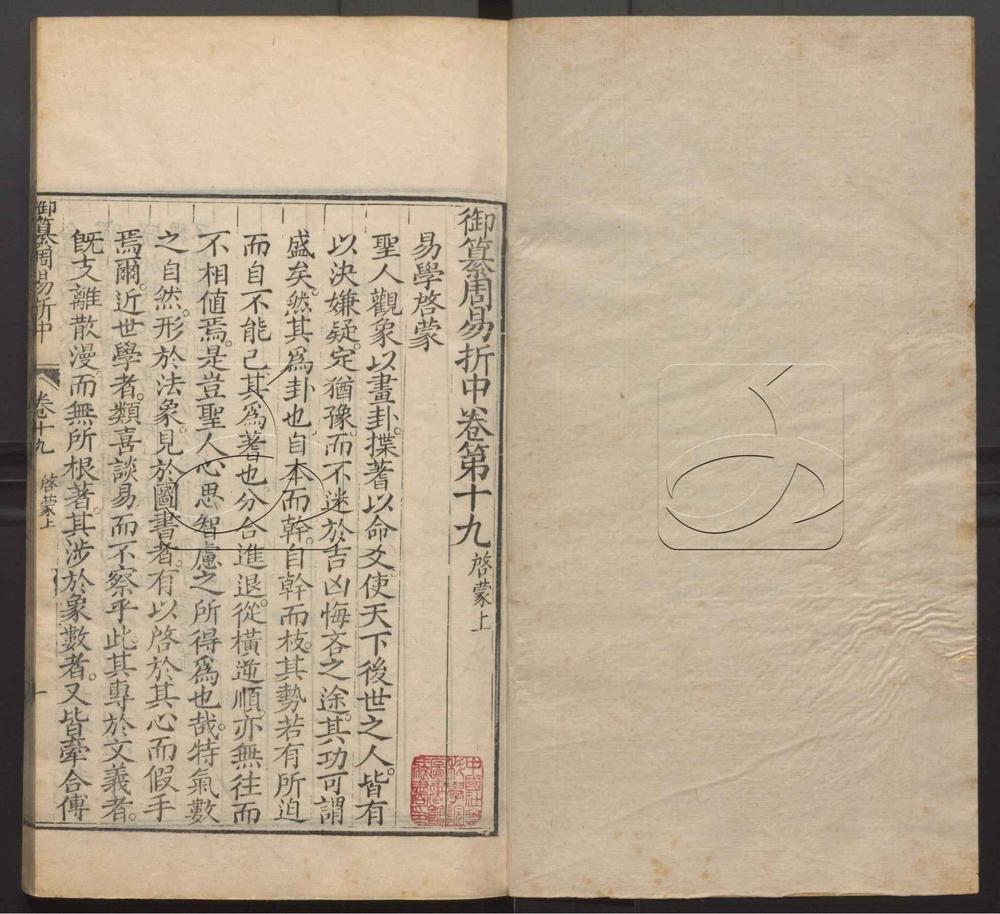 御纂周易折中卷第十九 啓蒙上
易學啓蒙
聖人觀象以畫卦。揲蓍以命爻。使天下後世之人。皆有
以決嫌疑。定猶豫。而不迷於吉凶悔吝之途。其功可謂
盛矣。然其爲卦也。自本而幹。自幹而枝。其勢若有所迫
而自不能已。其爲蓍也。分合進退。從橫逆順。亦無往而
不相値焉。是豈聖人心思智慮之所得爲也哉。特氣數
之自然。形於法象。見於圖書者。有以啓於其心而假手
焉爾。近世學者。類喜談易而不察乎此。其專於文義者。
旣支離散漫。而無所根著。其涉於象數者。又皆牽合傅
御纂周易折中
卷十九 啓蒙上
一